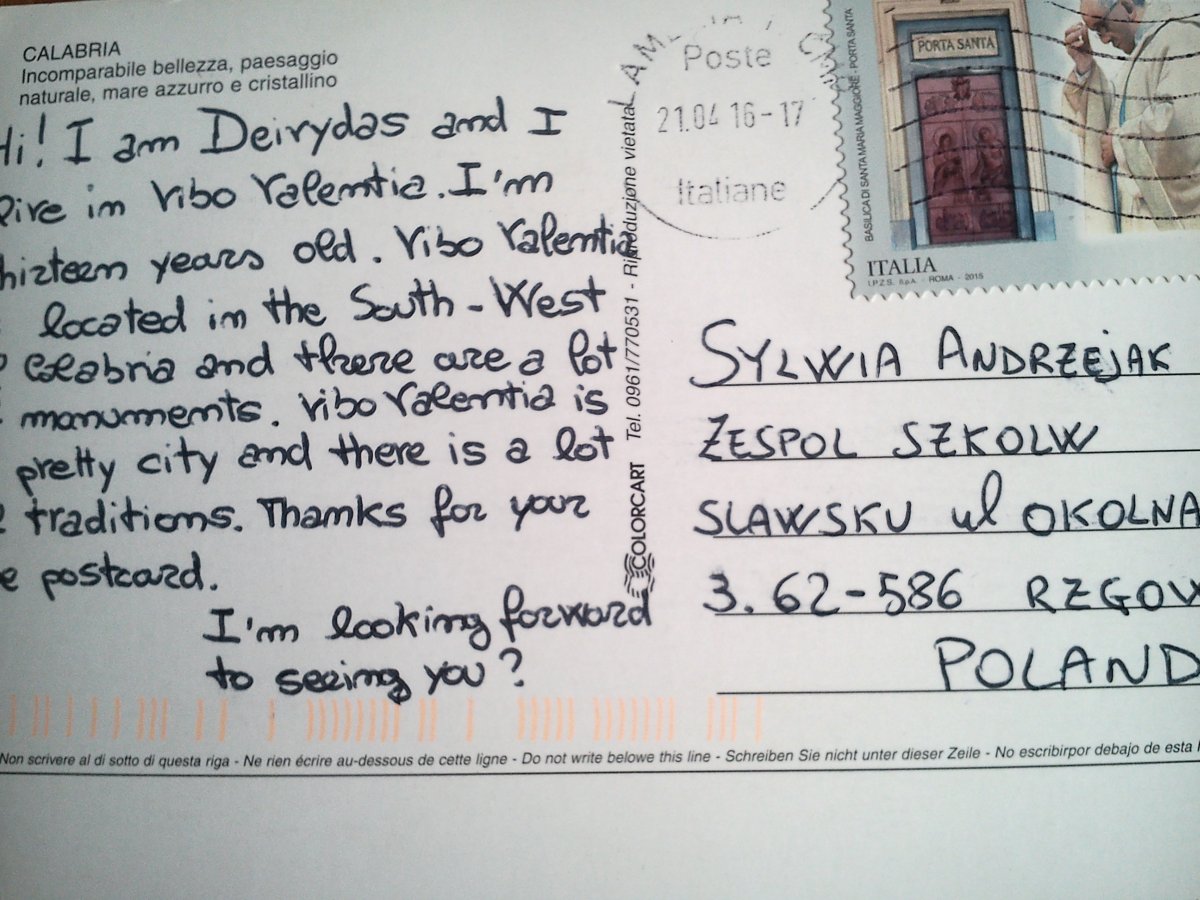 CALABRIA
Incomparabile bellezza, paesaggio
naturale, mare azzurro e cristallino
Hi! I am Deivydas and I
live in Vibo Valentia. I'm
hirteen years old. Vibo Valentia
located in the South-West
Calabria and there are a lot
monuments. Vibo Valentia is
pretty city and there is a lot
traditions. Thanks for your
e postcard.
I'm looking forward
to seeing you?
COLORCART Tel. 0961/770531 - Riproduzione vietata
Poste
21.04 16-17
Italiane
PORTA SANTA
BASILICA DI SANTA MARIA MAGGIORE - PORTA SANTA
ITALIA
I.P.Z.S. S.p.A. - ROMA - 2015
SYLWIA ANDRZEJAK
ZESPOL SZKOLW
SLAWSKU ul OKOLNA
3. 62-586 RZGOW
POLAND
Non scrivere al di sotto di questa riga - Ne rien écrire au-dessous de cette ligne - Do not write belowe this line - Schreiben Sie nicht unter dieser Zeile - No escribirpor debajo de esta